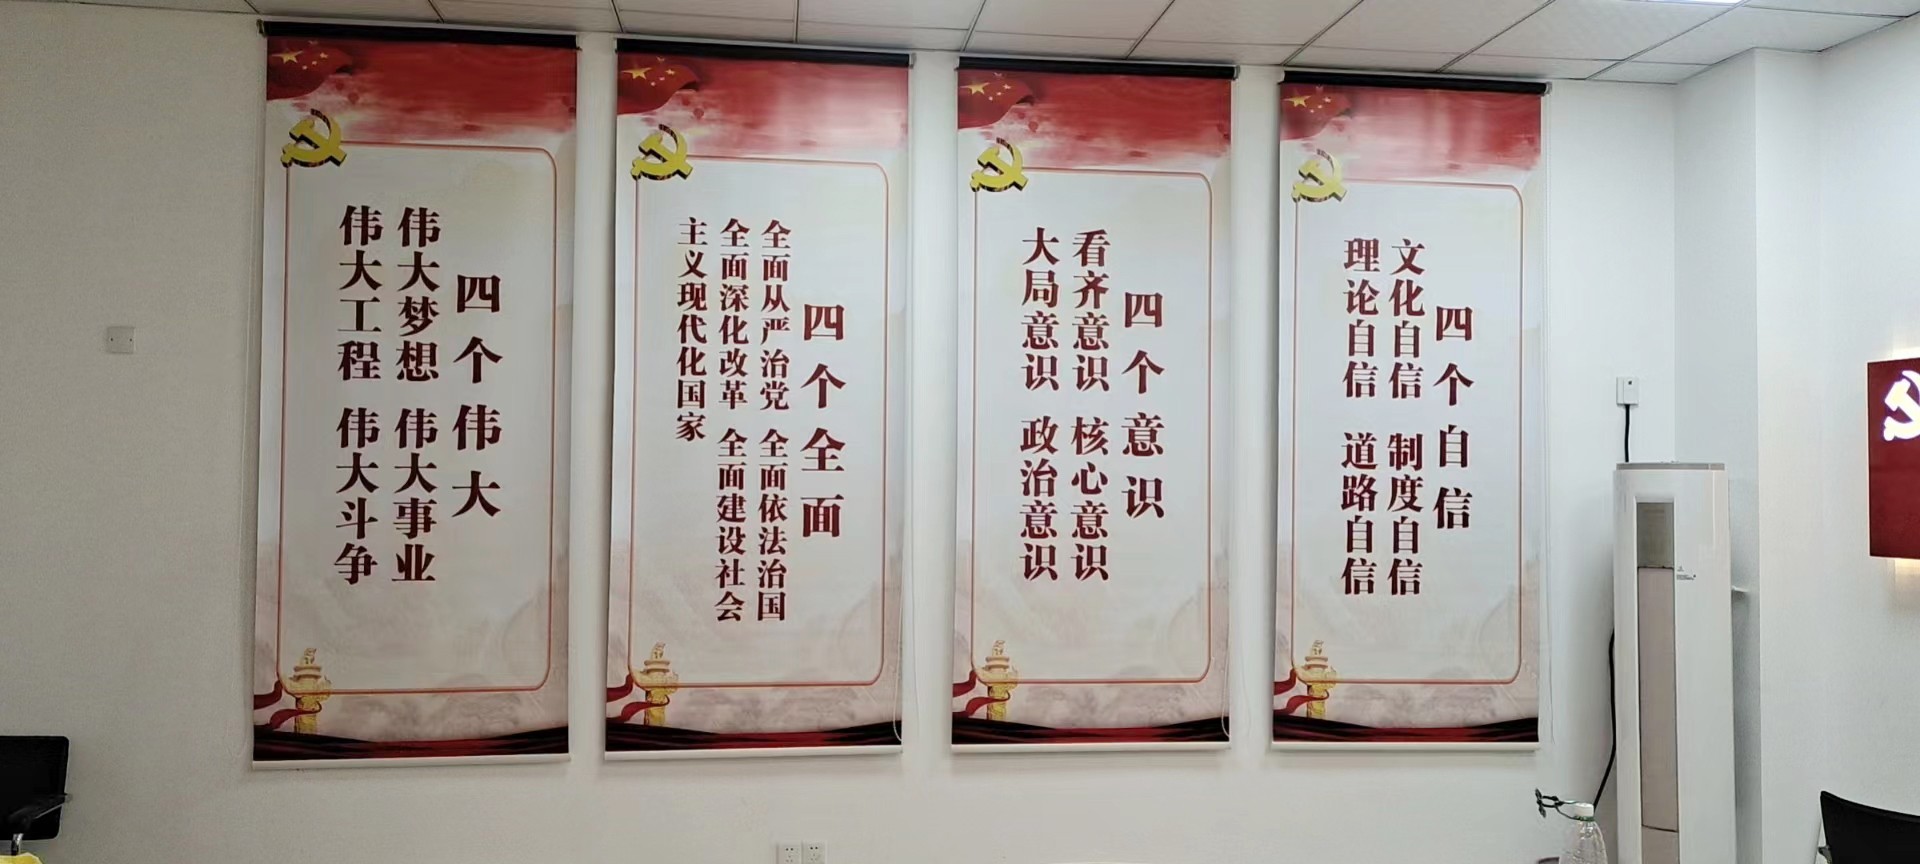 四个伟大
伟大梦想 伟大事业
伟大工程 伟大斗争
四个全面
全面从严治党 全面依法治国
全面深化改革 全面建设社会
主义现代化国家
四个意识
看齐意识 核心意识
大局意识 政治意识
四个自信
文化自信 制度自信
理论自信 道路自信